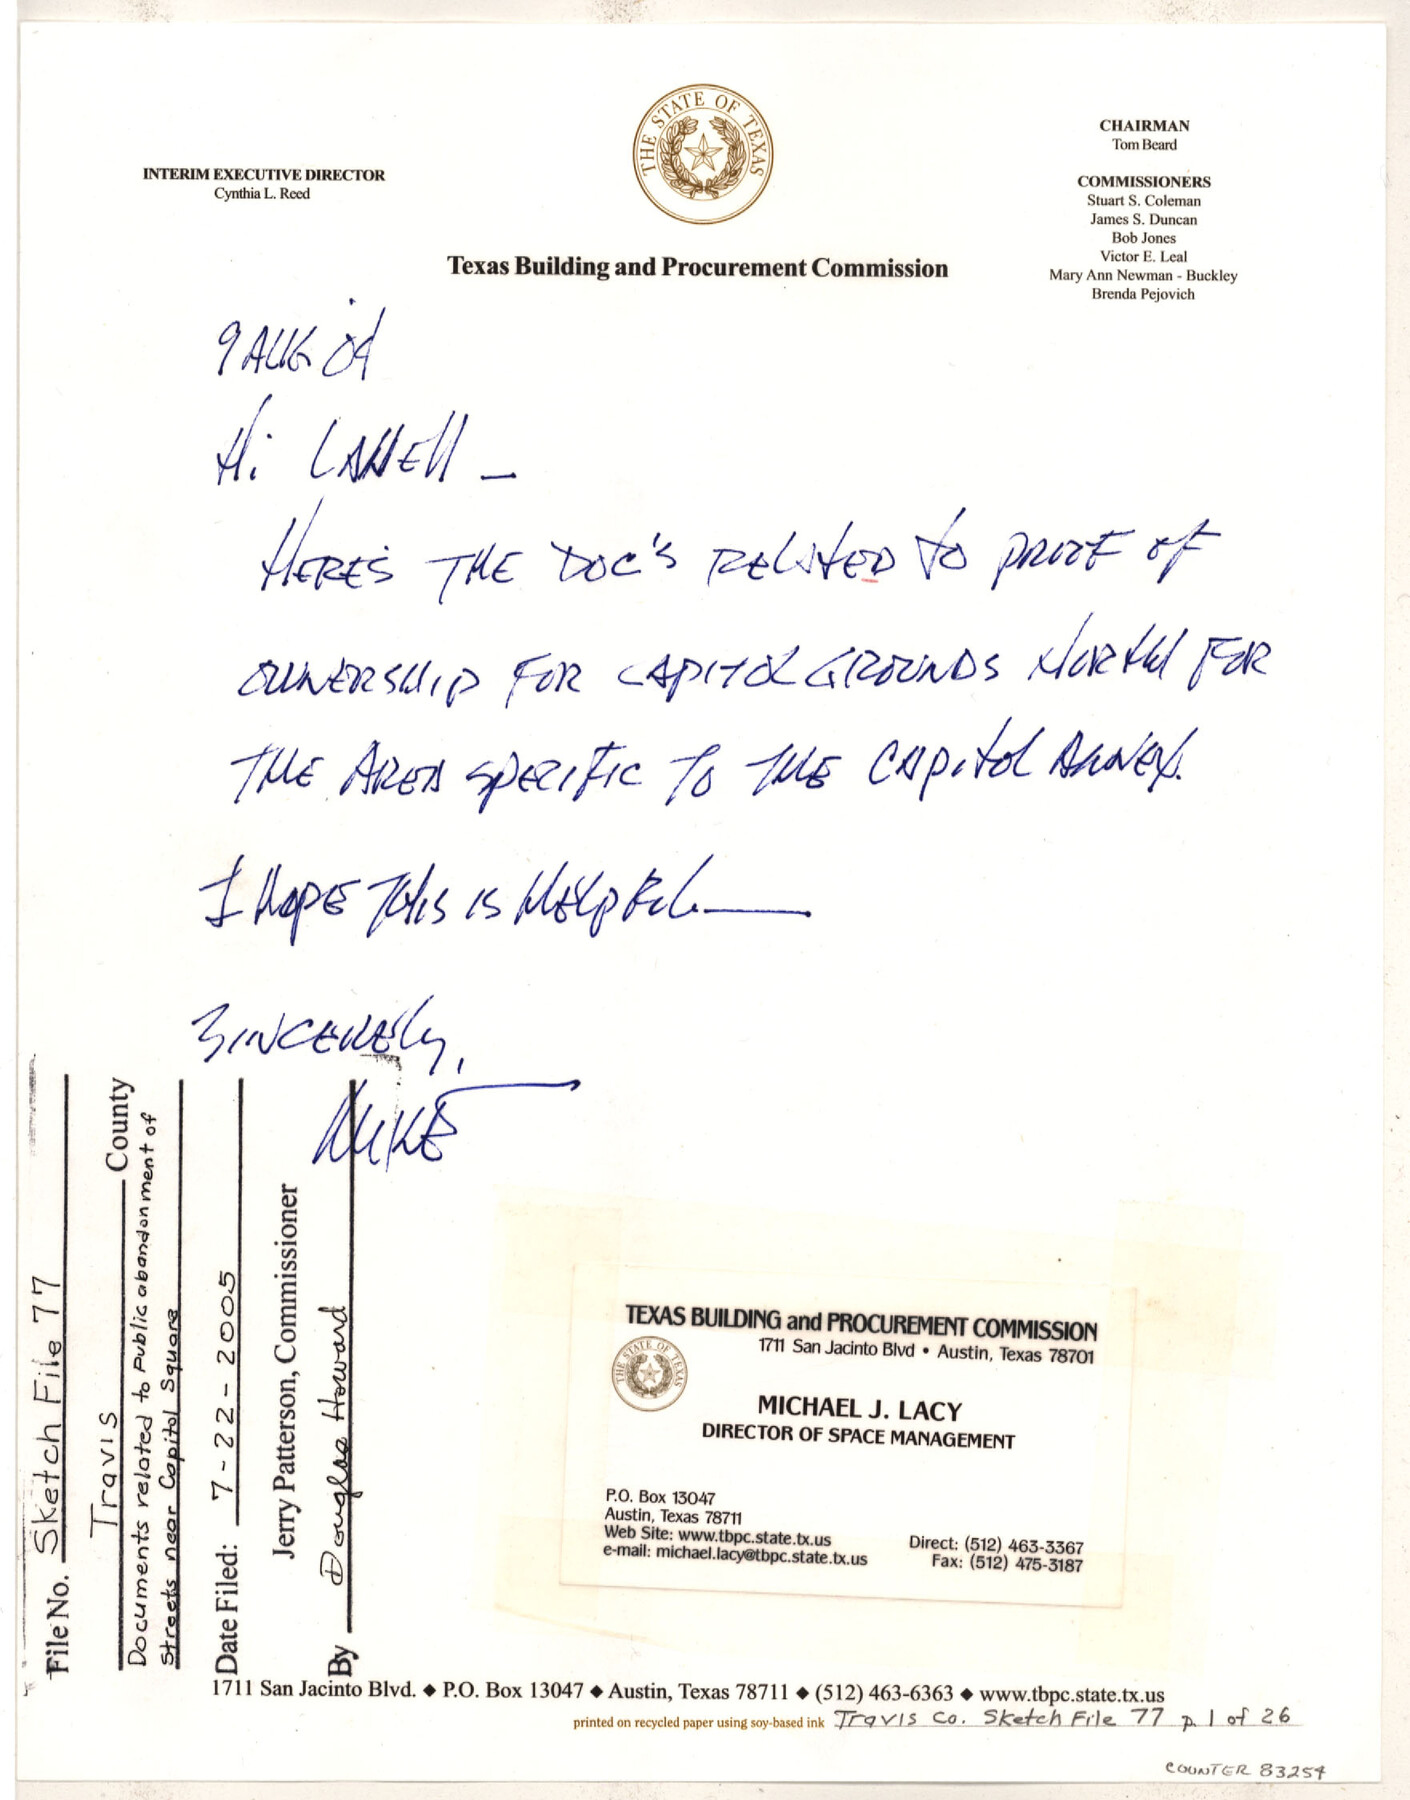 THE STATE OF TEXAS
INTERIM EXECUTIVE DIRECTOR
Cynthia L. Reed
CHAIRMAN
Tom Beard
COMMISSIONERS
Stuart S. Coleman
James S. Duncan
Bob Jones
Victor E. Leal
Mary Ann Newman - Buckley
Brenda Pejovich
Texas Building and Procurement Commission
9 AUG 04
Hi LANELL –
HERE'S THE DOC'S RELATED TO PROOF OF
OWNERSHIP FOR CAPITOL GROUNDS NORTH FOR
THE AREA SPECIFIC TO THE CAPITOL ANNEX.
I HOPE THIS IS HELPFUL
SINCERELY,
MIKE
File No. Sketch File 77
Travis County
Documents related to Public abandonment of
Streets near Capitol Square
Date Filed: 7-22-2005
Jerry Patterson, Commissioner
By Douglas Howard
TEXAS BUILDING and PROCUREMENT COMMISSION
1711 San Jacinto Blvd • Austin, Texas 78701
THE STATE OF TEXAS
MICHAEL J. LACY
DIRECTOR OF SPACE MANAGEMENT
P.O. Box 13047
Austin, Texas 78711
Web Site: www.tbpc.state.tx.us
e-mail: michael.lacy@tbpc.state.tx.us
Direct: (512) 463-3367
Fax: (512) 475-3187
1711 San Jacinto Blvd. ◆ P.O. Box 13047 ◆ Austin, Texas 78711 ◆ (512) 463-6363 ◆ www.tbpc.state.tx.us
printed on recycled paper using soy-based ink Travis Co. Sketch File 77 p. 1 of 26
COUNTER 83254